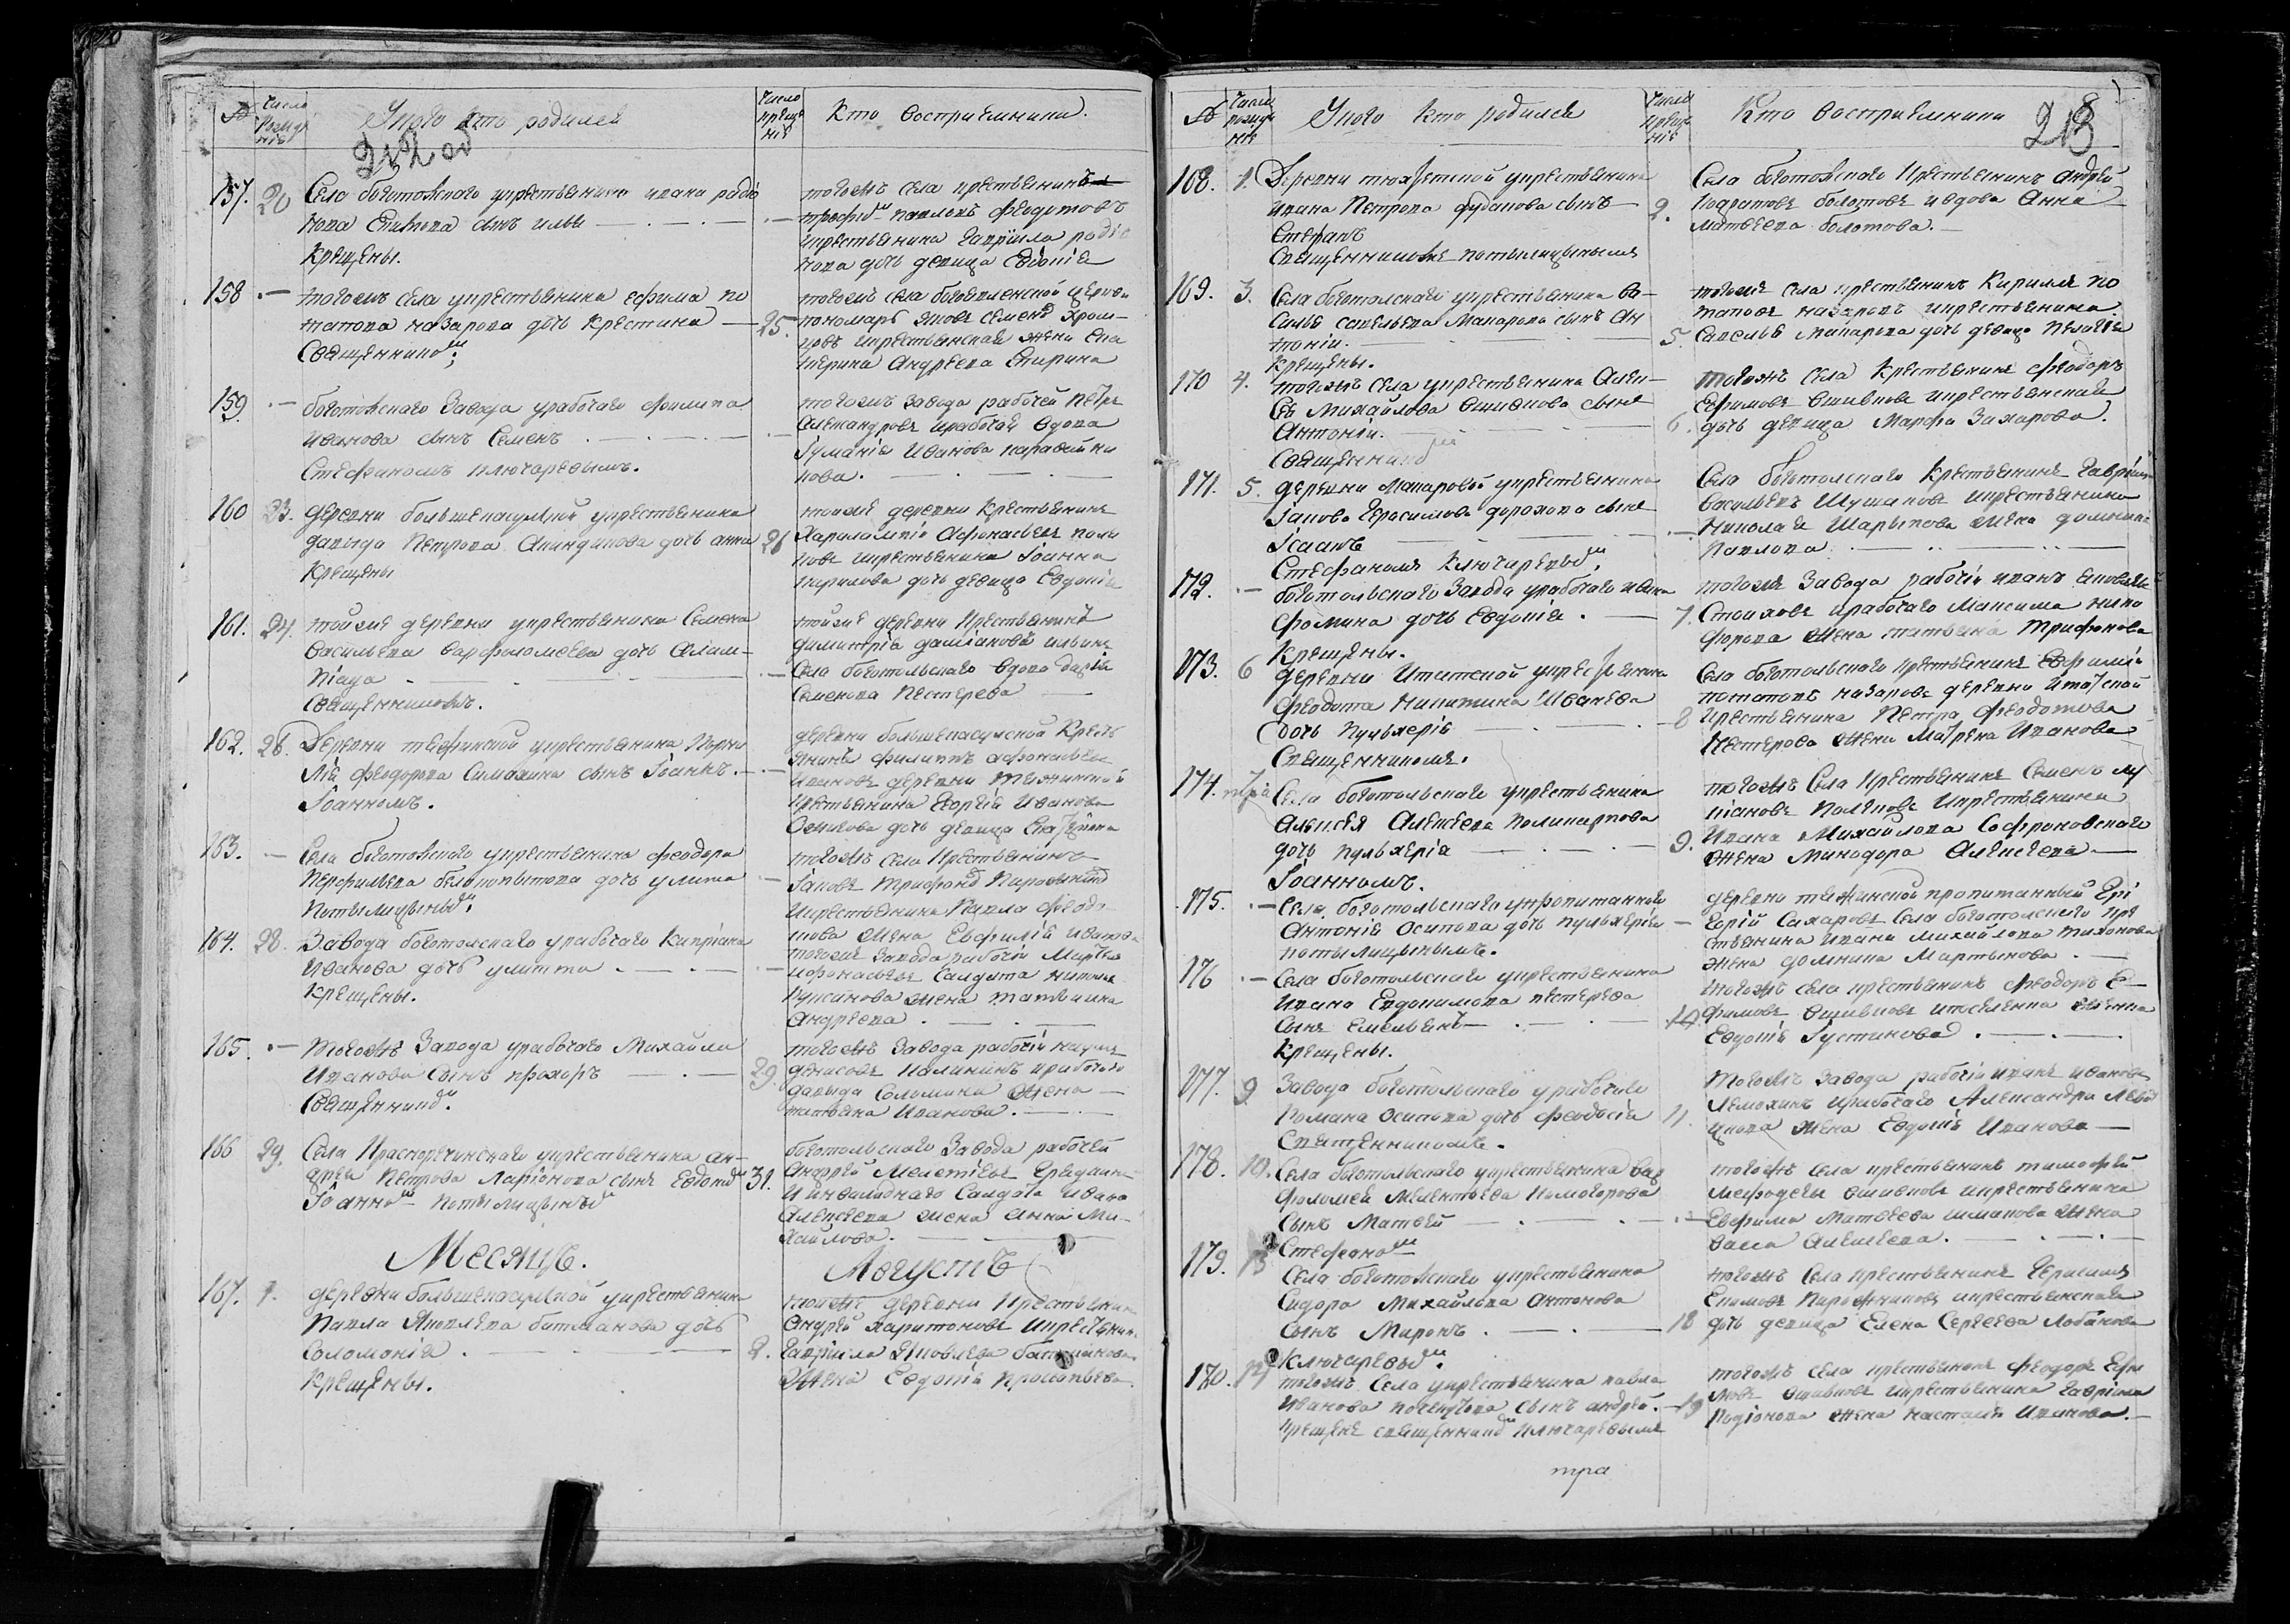 № Число рожде нія У кого кто родился Число креще нія Кто восприемники.
212 об
157. 20 Села боготольскаго у крестьянина ивана родіо
нова Спирина сынъ илья
Крещены.
тогожъ села крестьянинъ
трофимъ павловъ федотовъ
икрестьянина гавріила родіо
нова дочь девица Евдокія
158 тогожъ села у крестьянина ефима по
тапова назарова дочь Крестина 25.
Священникомъ.
тогожъ села богоявленской церкви
пономарь яковъ семеновъ
икрестьянская жена Ека
терина Андреева Спирина
159. боготольскаго Завода у рабочаго филипа
Иванова сынъ Семенъ
Стефаномъ ключаревымъ.
тогожъ завода рабочей Петръ
Александровъ ирабочая вдова
Іуланія Иванова
160 23. деревни большекосульской у крестьянина
давыда Петрова Акиндинова дочь анна 26
Крещены
тойже деревни Крестьянинъ
Харалампій Афонасьевъ поли
ковъ икрестьянина Іоанна
кирилова дочь девица Евдокія
161. 24. тойже деревни у крестьянина Семена
Васильева варфоломеева дочь Олим-
піада
Священникомъ.
тойже деревни Крестьянинъ
димитрій
Села боготольскаго вдова дарія
Семенова Пестерева
162. 26. Деревни тяжинской у крестьянина Корни
лія феодорова Симахина сынъ Іоаннъ.
Іоанномъ.
деревни большекосульской Кресть
янинъ филиппъ афонасьевъ
Ивановъ деревни тяжинской
Крестьянина Георгія Иванова
Осипова дочь девица Екатерина
163. Села боготольскаго у крестьянина феодора
Перфильева белокопытова дочь улита
Потылицынымъ.
тогожъ села Крестьянинъ
Іаковъ трифоновъ Пирожковъ
икрестьянина Павла федо
това жена Евфимія
164. 28. Завода боготольскаго у рабочаго Кипріана
Иванова дочь улитта
Крещены.
тогоже Завода рабочій Мартинъ
афонасьевъ Салдата
жена татьяна
Андреева
165. тогожъ Завода у рабочаго Михайла
Иванова сынъ прохоръ 29.
Священникомъ.
тогожъ завода рабочій наумъ
денисовъ Калининъ ирабочаго
давыда Соломина жена
татьяна Иванова.
166 29. Села Краснореченскаго у крестьянина ан-
дрея Петрова Ларіонова сынъ Евдокимъ 31.
Іоанномъ Потылицынымъ
боготольскаго Завода рабочей
Андрей Мелетіевъ
и инвалиднаго Салдата Ивана
Алексеева жена Анна Ми-
хайлова.
Месяцъ. Августъ
167. 1. деревни большекосульской у крестьянина
Павла Яковлева батманова дочь
Соломонія 2.
Крещены.
тойже деревни Крестьянинъ
Андрей харитоновъ икрестьянина
Гавріила Яковлева батманова
жена Евдокія прокопьева
№ Число рожде нія У кого кто родился Число креще нія Кто восприемники
213
168. 1. Деревни тюхтетской у крестьянина
ивана Петрова рубанова сынъ 2.
Стефанъ
Священникомъ потылицынымъ
Села боготольскаго Крестьянинъ андрей
Кодратовъ болотовъ и вдова Анна
Матвеева болотова.
169. 3. Села боготольскаго у крестьянина Ва-
силья савельева Макарова сынъ Ан
тоній. 5.
Крещены.
тогоже села крестьянинъ Кирилъ по
таповъ назаровъ икрестьянина
Савелья Макарова дочь девица Пелагія
170 4. тогожъ села у крестьянина Алек-
сея Михайлова Ошивкова сынъ
Антоній. 6.
Священникомъ
тогожъ села Крестьянинъ феодоръ
Ефимовъ Ошивковъ икрестьянская
дочь девица Марфа Захарова.
171. 5. деревни Макаровой у крестьянина
Іакова Герасимова дорохова сынъ
Ісаакъ
Стефаномъ Ключаревымъ.
Села боготольскаго Крестьянинъ Гавріилъ
Васильевъ Шушаковъ икрестьянина
Николая Шарыпова жена домникія
Павлова
172. боготольскаго Завода у рабочаго ивана
фомина дочь Евдокія. 7.
Крещены.
тогоже Завода рабочій иванъ яковлевъ
Стоиховъ ирабочаго Максима ники
форова жена татьяна Трифонова
173. 6 деревни Итатской у крестьянина
феодота Никитина Ивачева
дочь Пульхерія 8
Священникомъ.
Села боготольскаго крестьянинъ Евфимій
потаповъ назаровъ деревни Итатской
Крестьянина Петра феодотова
Нестерова жена Матрена Иванова
174. 7 Села боготольскаго у крестьянина
Алексея Алексеева поликарпова
дочь пульхерія 9.
Іоанномъ.
тогожъ Села Крестьянинъ Семенъ лу
кіановъ Полянковъ Икрестьянина
Ивана Михайлова Софроновскаго
жена Минодора Алексеева
175. Села боготольскаго упропитаннаго
Антонія Осипова дочь пульхерія
потылицынымъ.
деревни тяжинской пропитанный Гри
горій Сахаровъ Села боготольскаго кре
стьянина ивана михайлова тихонова
жена домнина Мартынова.
176 Села боготольскаго у крестьянина
Ивана Евдокимова пестерева
Сынъ Емельянъ 10.
Крещены.
тогожъ села крестьянинъ феодоръ Е-
фимовъ Ошивковъ жена
Евдокія Іустинова
177. 9 Завода боготольскаго у рабочаго
Романа Осипова дочь феодосія 11.
Священникомъ.
тогожъ Завода рабочій иванъ ивановъ
Лемохинъ ирабочаго Александра
жена Евдокія Иванова
178. 10. Села боготольскаго у крестьянина вар
фоломея Мелентьева Поможорова
сынъ Матвей
Стефаномъ
тогожъ села крестьянинъ тимофей
Мефодьевъ ошивковъ икрестьянина
Евфима Матвеева шманова жена
васса алексеева.
179. 13 Села боготольскаго у крестьянина
Сидора Михайлова Антонова
сынъ Миронъ. 18
Ключаревымъ.
тогожъ Села Крестьянинъ Герасимъ
Екимовъ Пирожниковъ икрестьянская
дочь девица Елена Сергеева Лобанова
170. 14 тогожъ Села у крестьянина павла
Иванова сынъ андрей. 19
крещенъ священникомъ Ключаревымъ
тогожъ села крестьянинъ Феодоръ Ефи
мовъ ошивковъ икрестьянина гавріила
Родіонова жена настасья Иванова.
тра